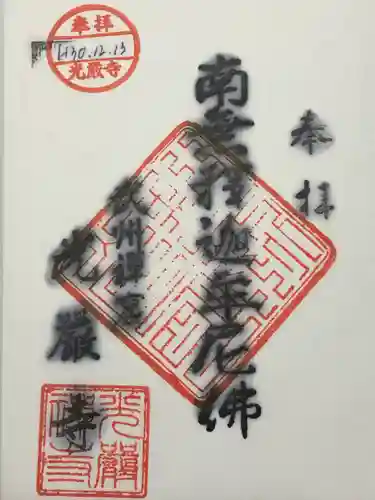 奉拝
H30.12.13
光厳寺
奉拝
南無釋迦牟尼佛
武州禅窓
光巖寺
光巖寺